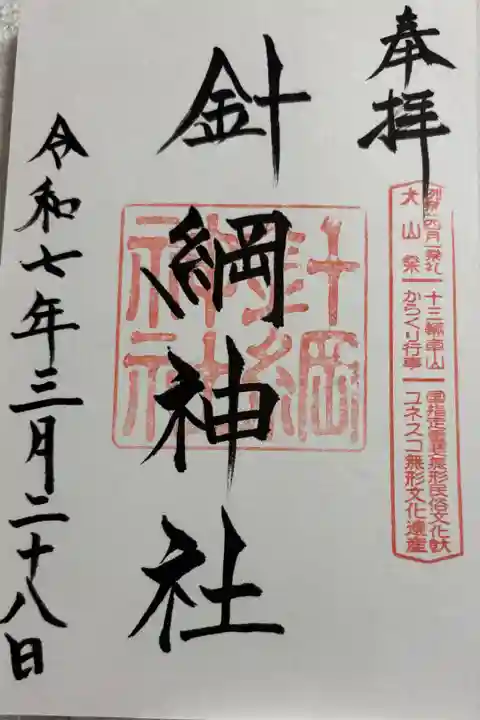 奉拝
例祭 四月 祭礼 十三輛車山 国指定重要無形民俗文化財
犬山祭 からくり行事 ユネスコ無形文化遺産
針綱神社
針綱
神社
令和七年三月二十八日